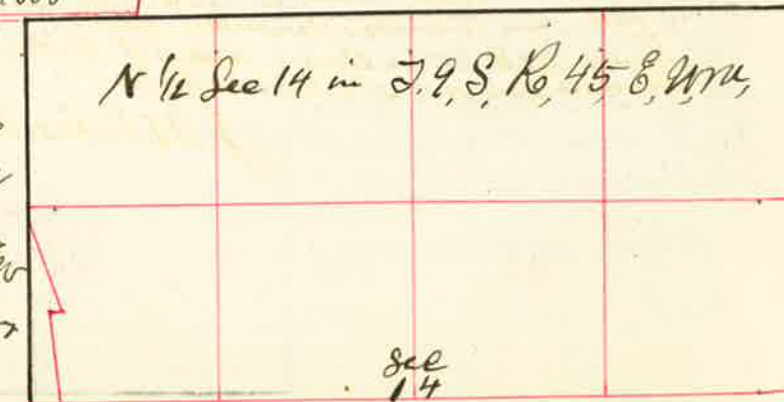 N 1/2 Sec 14 in T.9, S, R, 45 E, W.M,
Sec
14